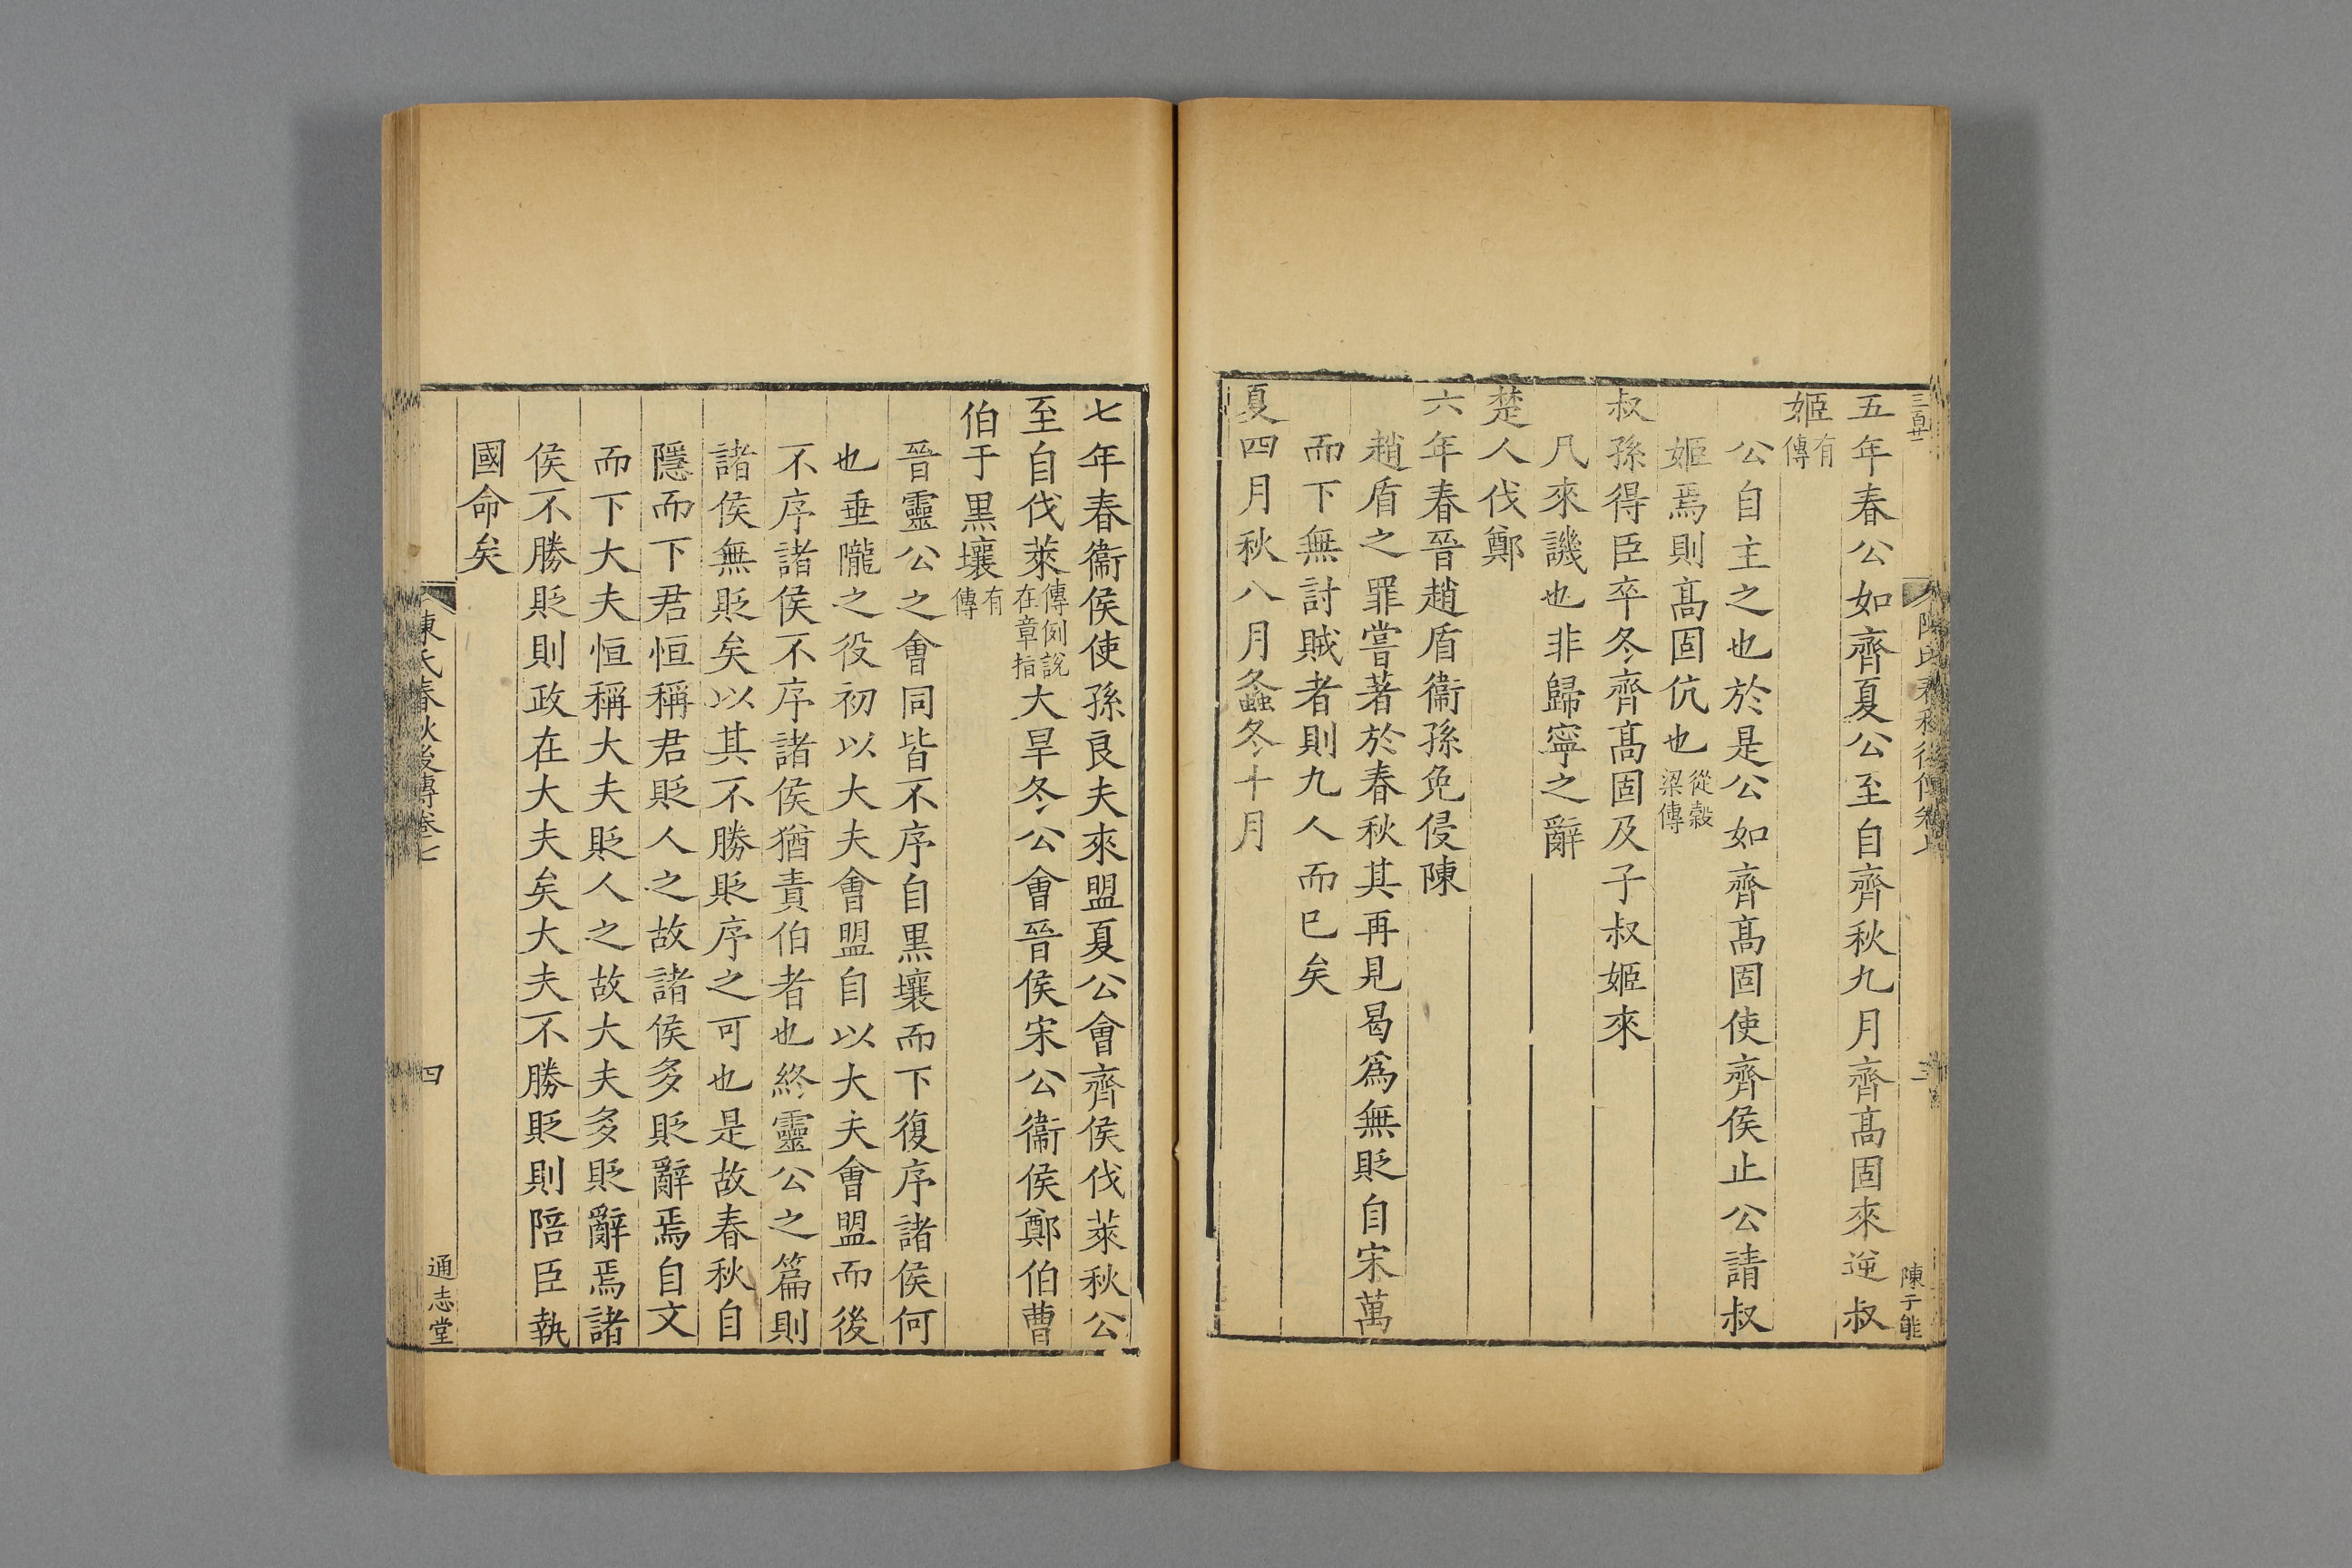 三百廿一
五年春公如齊夏公至自齊秋九月齊髙固來逆叔
姬有傳
公自主之也於是公如齊髙固使齊侯止公請叔
姬焉則髙固伉也從穀梁傳
叔孫得臣卒冬齊髙固及子叔姬來
凡來譏也非歸寧之辭
楚人伐鄭
六年春晉趙盾衞孫免侵陳
趙盾之罪嘗著於春秋其再見曷爲無貶自宋萬
而下無討賊者則九人而已矣
夏四月秋八月螽冬十月
陳氏春秋後傳卷七
三
陳子能
七年春衞侯使孫良夫來盟夏公會齊侯伐萊秋公
至自伐萊傳例說在章指大旱冬公會晉侯宋公衞侯鄭伯曹
伯于黒壤有傳
晉靈公之會同皆不序自黒壤而下復序諸侯何
也垂隴之役初以大夫會盟自以大夫會盟而後
不序諸侯不序諸侯猶責伯者也終靈公之篇則
諸侯無貶矣以其不勝貶序之可也是故春秋自
隱而下君恒稱君貶人之故諸侯多貶辭焉自文
而下大夫恒稱大夫貶人之故大夫多貶辭焉諸
侯不勝貶則政在大夫矣大夫不勝貶則陪臣執
國命矣
陳氏春秋後傳卷七
四
通志堂